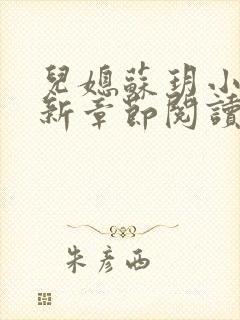 兒媳蘇玥小
新章節閱讀
朱彥西